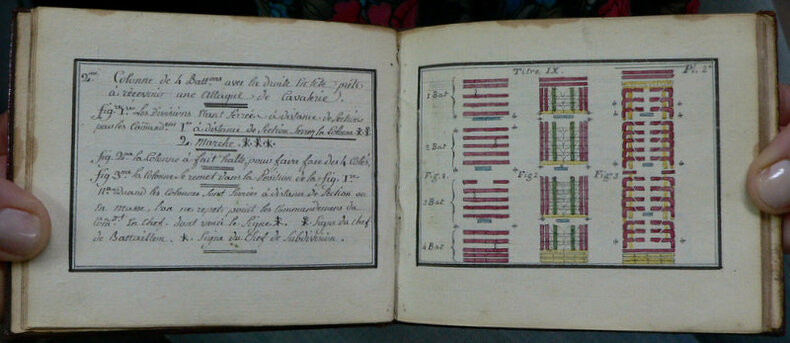 2me. Colonne de 4 Battons avec la droite en tête prête
à recevoir une attaque de Cavalerie).
fig. 1re. Les Divisions étant serrées à distance de Section
pour les Commandem 1o à distance de Section serrez la Colonne ⁎⁎
2. Marche. ⁎⁎⁎
fig. 2me. la Colonne a fait halte, pour faire face des 4 Côtés.
fig. 3me. la Colonne se remet dans la Position de la fig. 1re
Na. quand les Colonnes sont serrées à distance de Section ou
en masse, l'on ne repete point les Commandemens du
Comdt. en Chef. dont voici le Signe ⁎. ⁎ Signe du Chef
de Battaillon. ⁎. Signe du Chef de Subdivision.
Titre IX.
Pl. 2e
1 Bat
2 Bat
Fig. 1
Fig 2
Fig 3
3 Bat
4 Bat